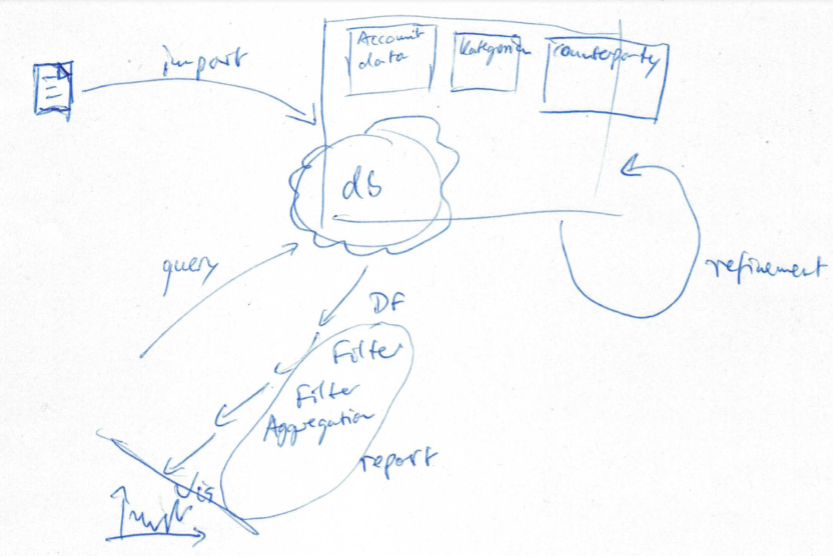 import
Account
data
Kategorien
counterparty
db
query
refinement
DF
Filter
Filter
Aggregation
report
Vis